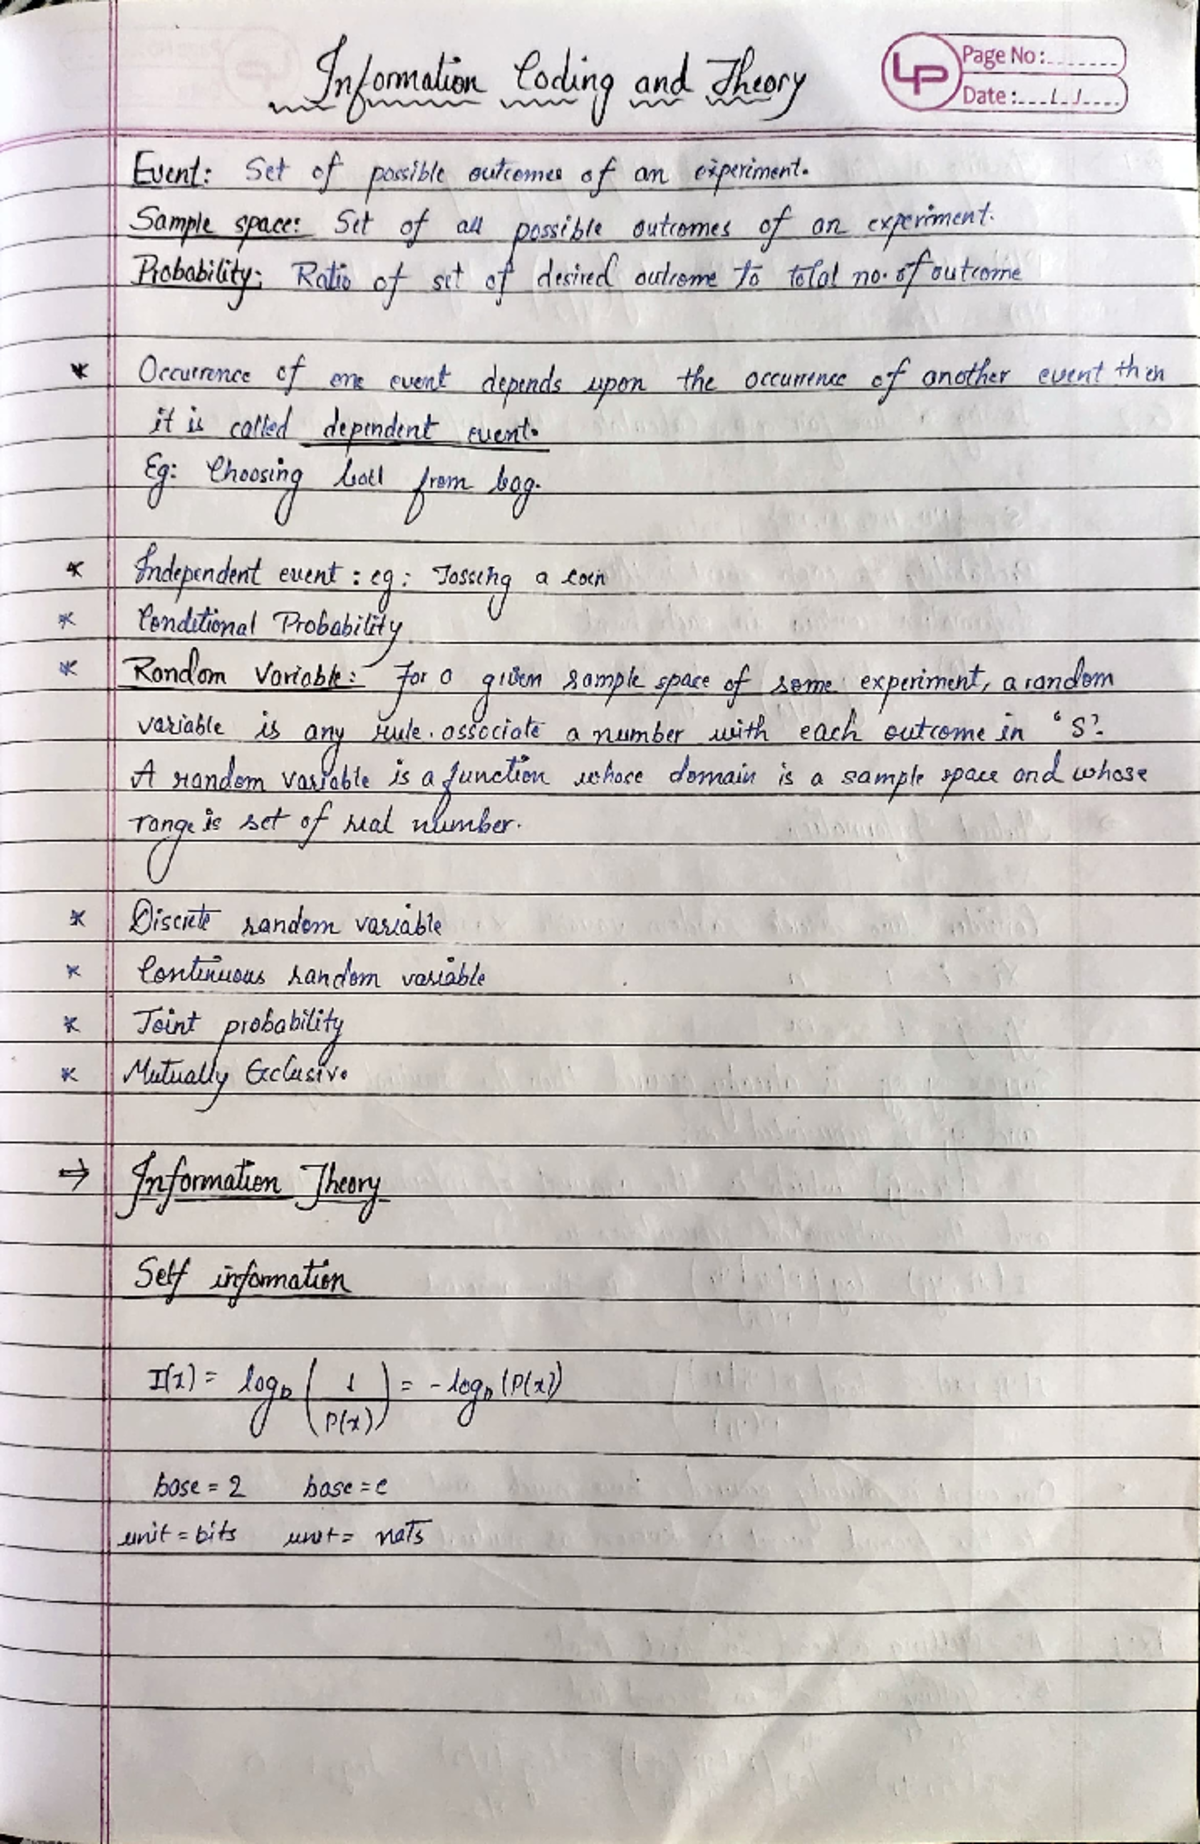 Information Coding and Theory
LP
Page No:
Date:
Event: Set of possible outcomes of an experiment.
Sample space: Set of all possible outcomes of an experiment.
Probability: Ratio of set of desired outcome to total no. of outcome
* Occurrence of one event depends upon the occurrence of another event then
it is called dependent event.
Eg: Choosing ball from bag.
* Independent event: eg: Tossing a coin
* Conditional Probability
* Random Variable: For a given sample space of some experiment, a random
variable is any rule associate a number with each outcome in 'S'.
A random variable is a function whose domain is a sample space and whose
range is set of real number.
* Discrete random variable
* Continuous random variable
* Joint probability
* Mutually Exclusive
⇒ Information Theory
Self information
I(x) = log_b (1/P(x)) = -log_b (P(x))
base = 2 base = e
unit = bits unit = nats